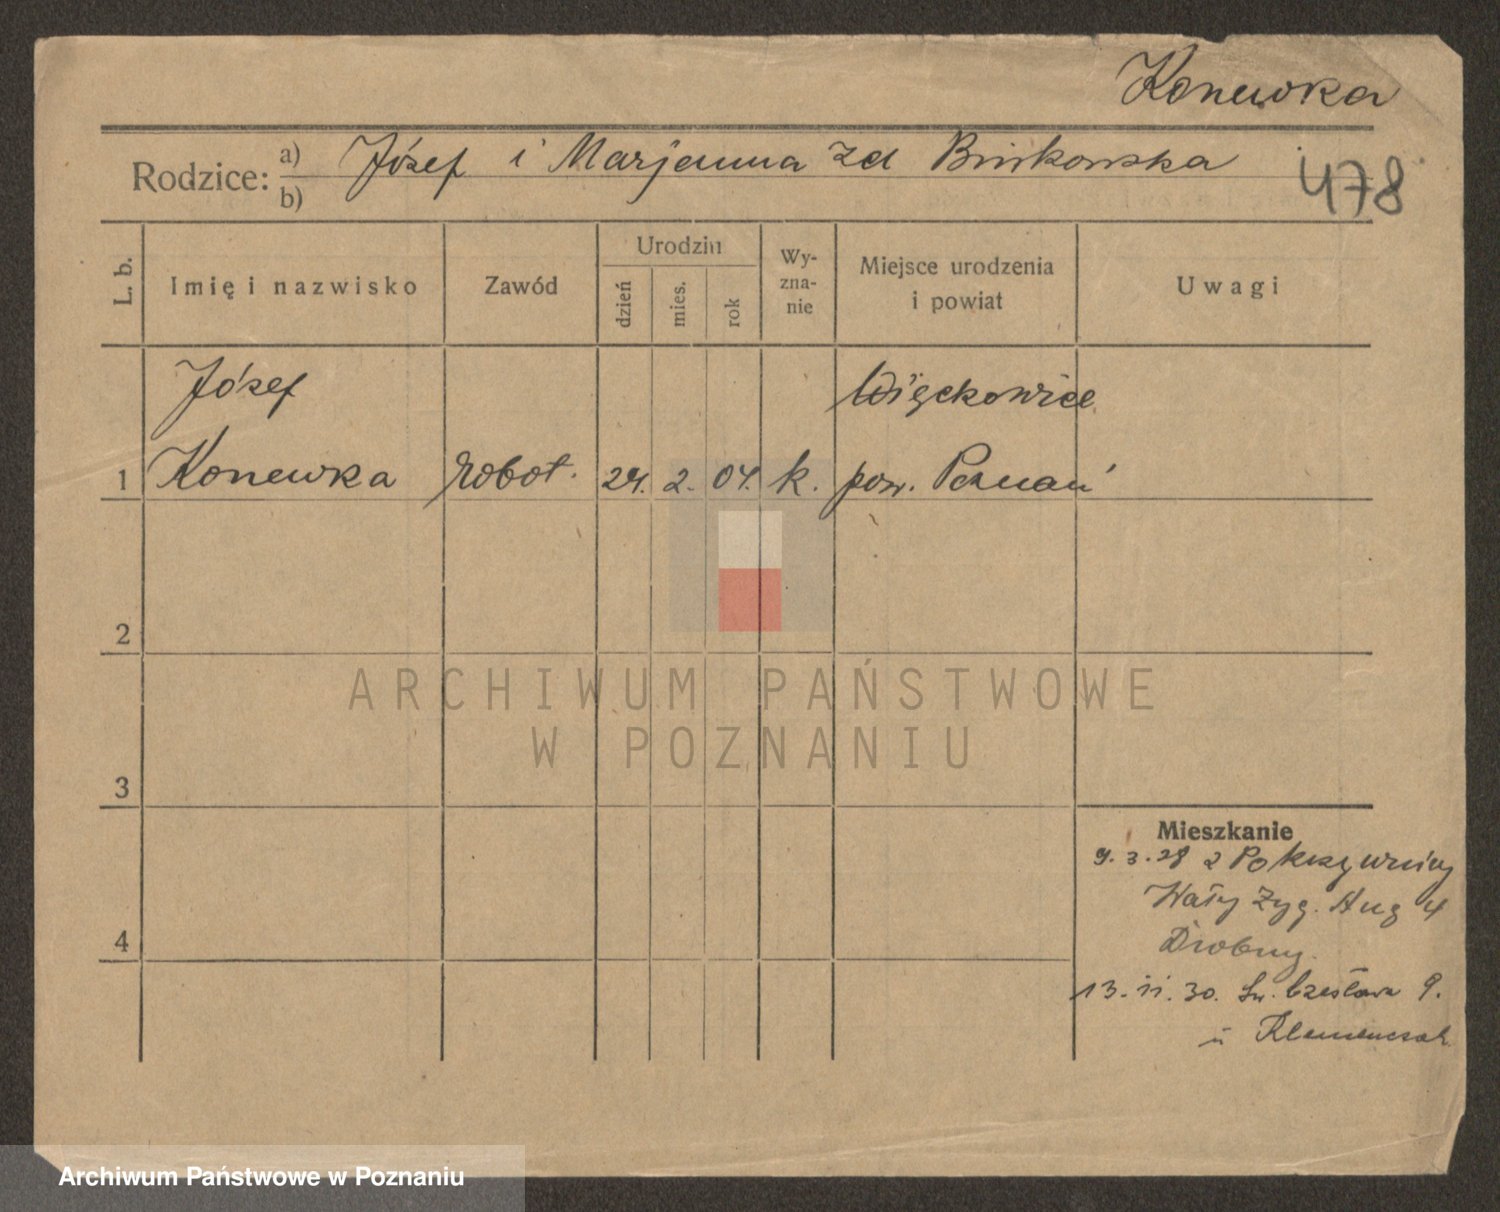 Konewka
Rodzice: a) Józef i Marjanna zd
b)
478
L. b.
Imię i nazwisko
Zawód
Urodzin
dzień
mies.
rok
Wy-
zna-
nie
Miejsce urodzenia
i powiat
Uwagi
Józef Więckowice
1 Konewka robot. 24. 2. 04. k. pow. Poznań
2
3
4
ARCHIWUM PAŃSTWOWE
W POZNANIU
Mieszkanie
9. 3. 28 z Pokrzywnicy
Wały Zyg. Aug 4
Drobny.
13. 11. 30. Św. Czesława 9.
u Klemenczak
Archiwum Państwowe w Poznaniu